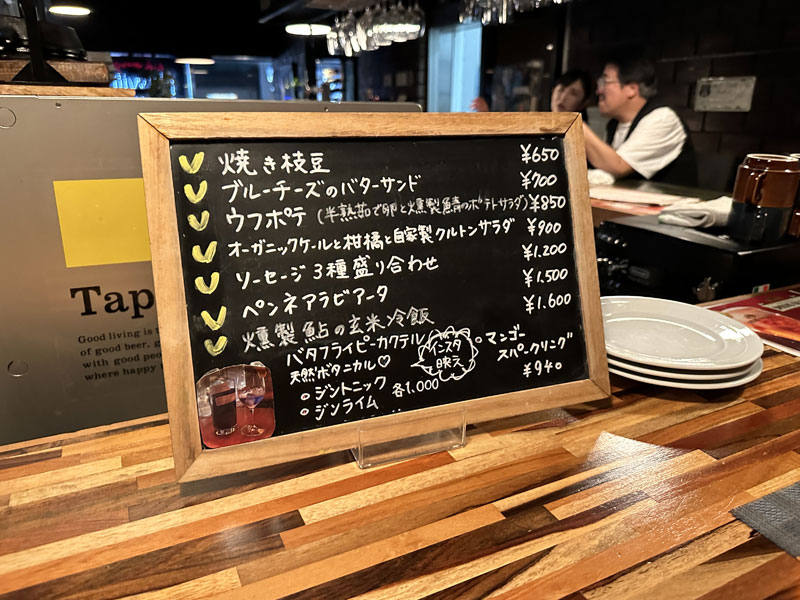 焼き枝豆 ¥650
ブルーチーズのバターサンド ¥700
ウフポテ (半熟茹で卵と燻製鯖のポテトサラダ) ¥850
オーガニックケールと柑橘と自家製クルトンサラダ ¥900
ソーセージ3種盛り合わせ ¥1.200
ペンネアラビアータ ¥1.500
燻製鮎の玄米冷飯 ¥1.600
バタフライピーカクテル
天然ボタニカル♡
ジントニック
ジンライム
各1.000
インスタ
映え
マンゴー
スパークリング
¥940
Tap
Good living is
of good beer, g
with good peo
where happy